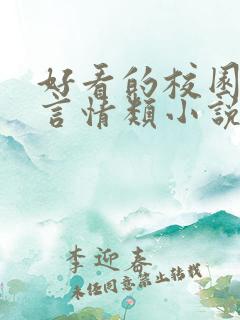 好看的校园
言情类小说
李迎春
未经同意禁止转载